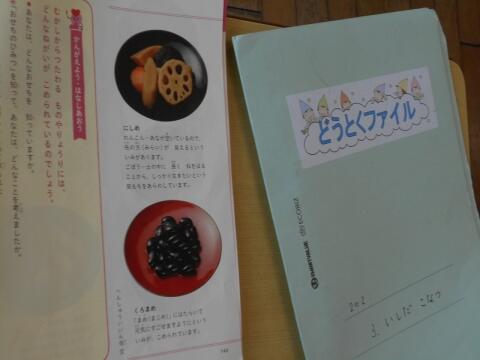 かんがえよう・はなしあおう
むかしからつたわる ものやりょうりには、
どんなねがいが こめられているのでしょう。
●あなたは、どんなおせちを 知っていますか。
●「おせちのひみつ」を知って、あなたは、どんなことを考えましたか。
にしめ
れんこん…あなが空いているので、
先の方(みらい)が 見えるという
いみがあります。
ごぼう…土の中に 長く ねをはる
ことから、しっかり生きたいという
気もちをあらわしています。
くろまめ
「まめ(まじめ)」にはたらいて
元気にすごせますようにという
いみが、こめられています。
へんしゅういいん会 文
149
どうとくファイル
ECORIZ
202
3. いしだ こなつ